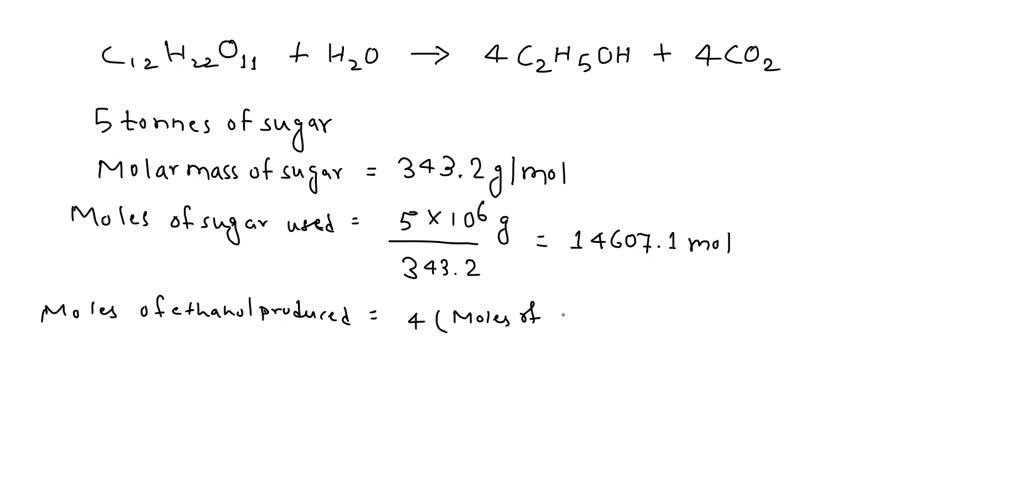 C₁₂H₂₂O₁₁ + H₂O → 4C₂H₅OH + 4CO₂
5 tonnes of sugar
Molar mass of sugar = 343.2 g/mol
Moles of sugar used = 5×10⁶ g / 343.2 = 14607.1 mol
Moles of ethanol produced = 4 (Moles of